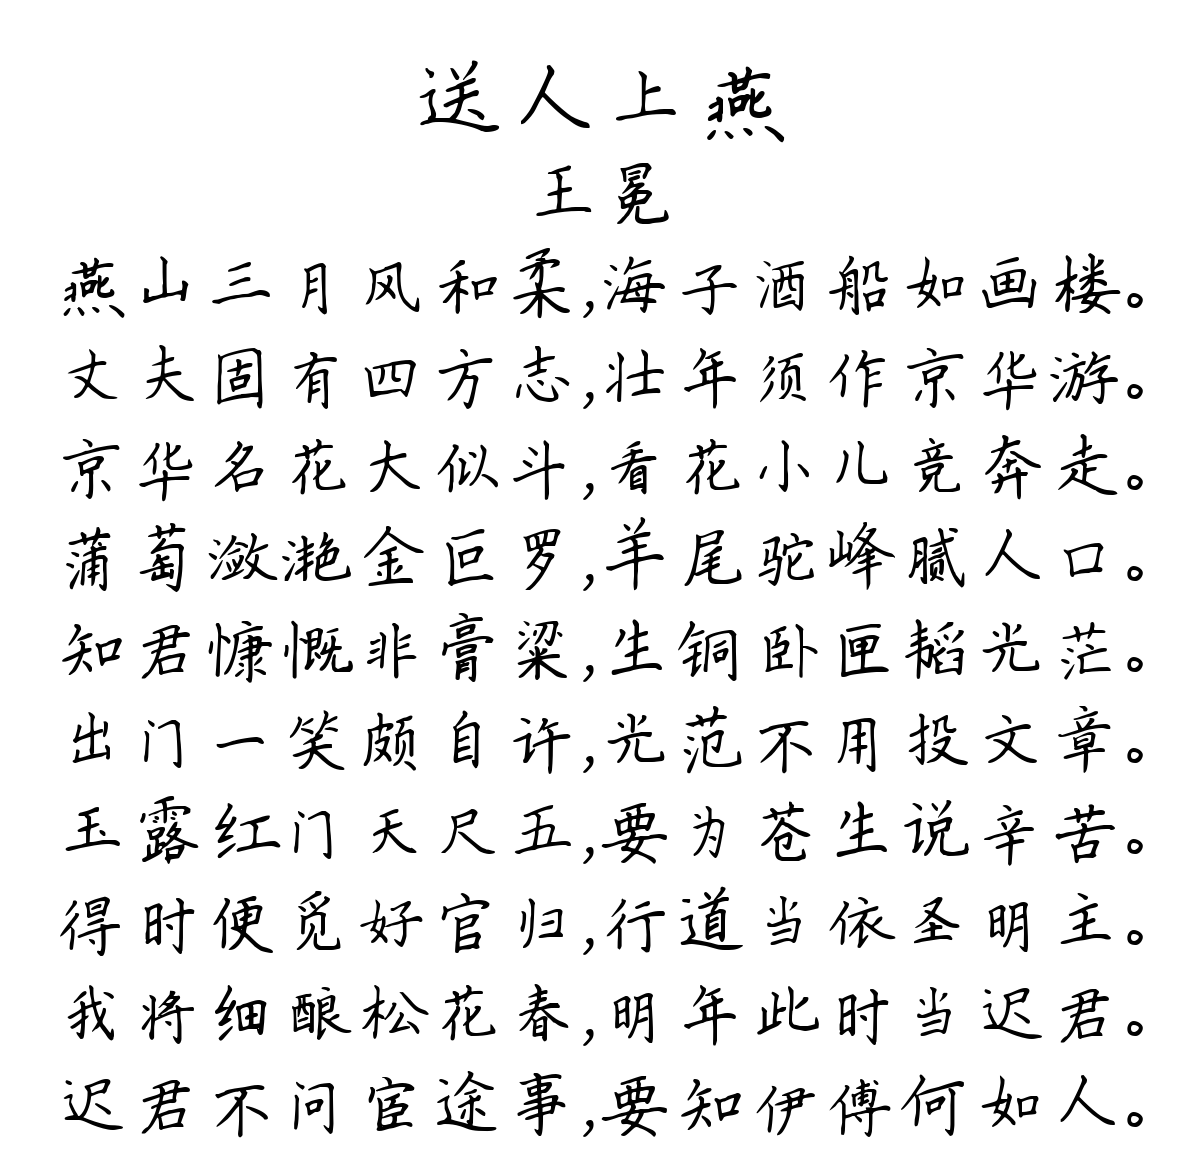 送人上燕
王冕
燕山三月风和柔,海子酒船如画楼。
丈夫固有四方志,壮年须作京华游。
京华名花大似斗,看花小儿竞奔走。
蒲萄潋滟金叵罗,羊尾驼峰腻人口。
知君慷慨非膏粱,生铜卧匣韬光茫。
出门一笑颇自许,光范不用投文章。
玉露红门天尺五,要为苍生说辛苦。
得时便觅好官归,行道当依圣明主。
我将细酿松花春,明年此时当迟君。
迟君不问宦途事,要知伊傅何如人。